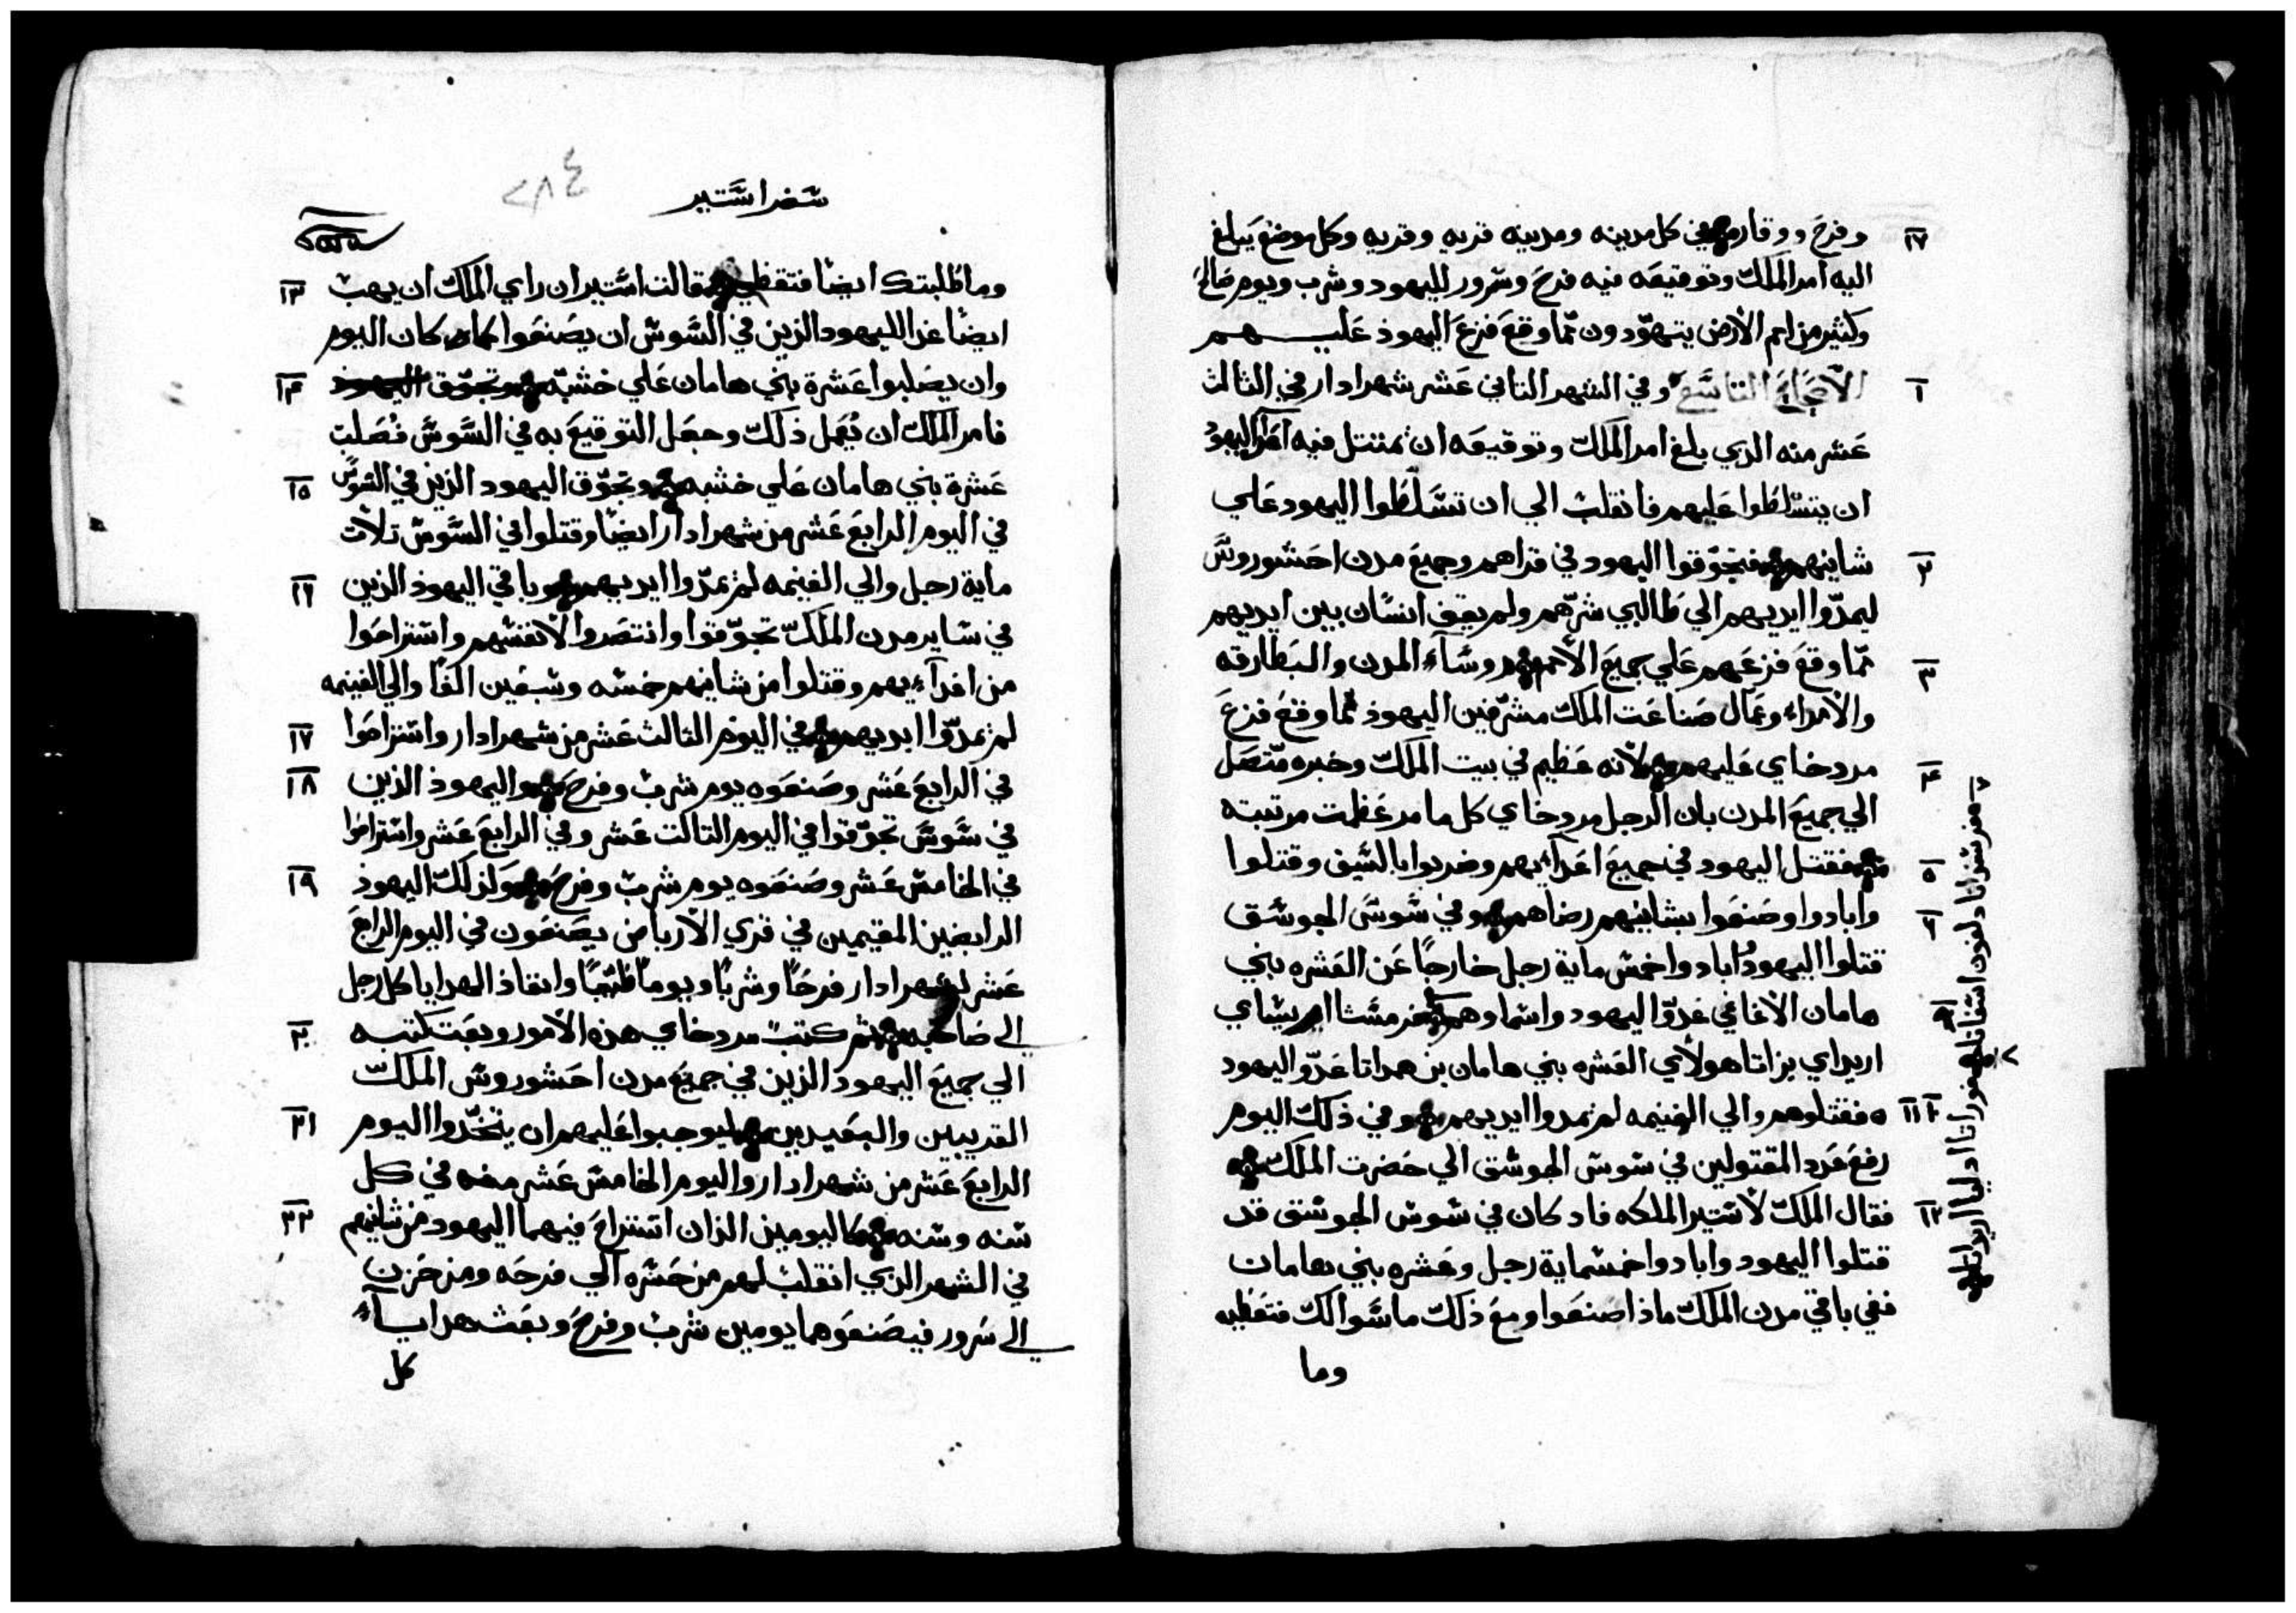 وفرح ووقار في كل مدينه ومدينه قريه وقريه وكل موضع يبلغ
١٧
اليه امر الملك وتوقيعه فيه فرح وسرور لليهود وشرب ويوم صالح
وكثير من امم الارض يتهوّدون ممّا وقع فزع اليهود عليهم
الاصحاح التاسع وفي الشهر الثاني عشر شهر ادار في الثالث
١
عشر منه الدي بلغ امر الملك وتوقيعه ان يمتثل فيه
ان يتسلطوا عليهم فانقلب الي ان تسلطوا اليهود علي
شاينهم فتجوّقوا اليهود في قراهم وجميع مدن احشوروش
٢
ليمدّوا ايديهم الي طالبي شرّهم ولم يقف انسان بين ايديهم
ممّا وقع فزعهم علي جميع الامم وروساء المدن والبطارقه
٣
والامراء وعمال صناعت الملك مشرّفين اليهود ممّا وقع فزع
مردخاي عليهم لانه عظيم في بيت الملك وخبره متّصل
٤
الي جميع المدن بان الرجل مردخاي كل ما مر عظمت مرتبته
فقتل اليهود في جميع اعداءيهم وضربوا بالسيف وقتلوا
٥
وابادوا وصنعوا بشاينهم رضاهم وفي سوس الجوسق
٦
قتلوا اليهود ابادوا خمس ماية رجل خارجًا عن العشره بني
هامان الاغاغي عدوّ اليهود واسماوهم
اريداي يزاتا هولاي العشره بني هامان بن همداتا عدوّ اليهود
فقتلوهم والي الغنيمه لم يمدوا ايديهم وفي ذلك اليوم
١٠ ١١
رفع عدد المقتولين في سوس الجوسق الي حضرت الملك
فقال الملك لاستير الملكه فاد كان في سوس الجوسق قد
١٢
قتلوا اليهود وابادوا خمسماية رجل وعشره بني هامان
ففي باقي مدن الملك ماذا صنعوا ومع ذلك ما سوالك فتعطيه
وما
سفر استير
٢٨٤
وما طلبتك ايضًا فتقضي فقالت استير ان راي الملك ان يهب
١٣
ايضًا غدا لليهود الذين في السوس ان يصنعوا كما كان اليوم
وان يصلبوا عشرة بني هامان علي خشبه
١٤
فامر الملك ان يُعمل ذلك وجعل التوقيع به في السوس فصلبت
عشرة بني هامان علي خشبه وتجوّق اليهود الذين في السوس
١٥
في اليوم الرابع عشر من شهر ادار ايضًا وقتلوا في السوس تلات
ماية رجل والي الغنيمه لم يمدّوا ايديهم وباقي اليهود الذين
١٦
في ساير مدن الملك تجوّقوا وانتصروا لانفسهم واستراحوا
من اعداءيهم وقتلوا من شاينهم خمسه وسبعين الفًا والي الغنيمه
لم يمدّوا ايديهم في اليوم الثالث عشر من شهر ادار واستراحوا
١٧
في الرابع عشر وصنعوه يوم شرب وفرح واليهود الذين
١٨
في سوس تجوّقوا في اليوم التالت عشر وفي الرابع عشر واستراحوا
في الخامس عشر وصنعوه يوم شرب وفرح ولذلك اليهود
١٩
الرابضين المقيمين في قري الارباض يصنعون في اليوم الرابع
عشر لشهر ادار فرحًا وشربًا ويومًا طيبًا وانفاذ الهدايا كل رجل
الي صاحبه ثم كتب مردخاي هذه الامور وبعت كتبه
٢٠
الي جميع اليهود الذين في جميع مدن احشوروش الملك
القريبين والبعيدين ليوجبوا عليهم ان يتخّدوا اليوم
٢١
الرابع عشر من شهر ادار واليوم الخامس عشر منه في كل
سنه وسنه كاليومين الذان استراح فيهما اليهود من شاينهم
٢٢
في الشهر الذي انقلب لهم من حسره الي فرحه ومن حزن
الي سرور فيصنعوهما يومين شرب وفرح وبعث هدايا
كل